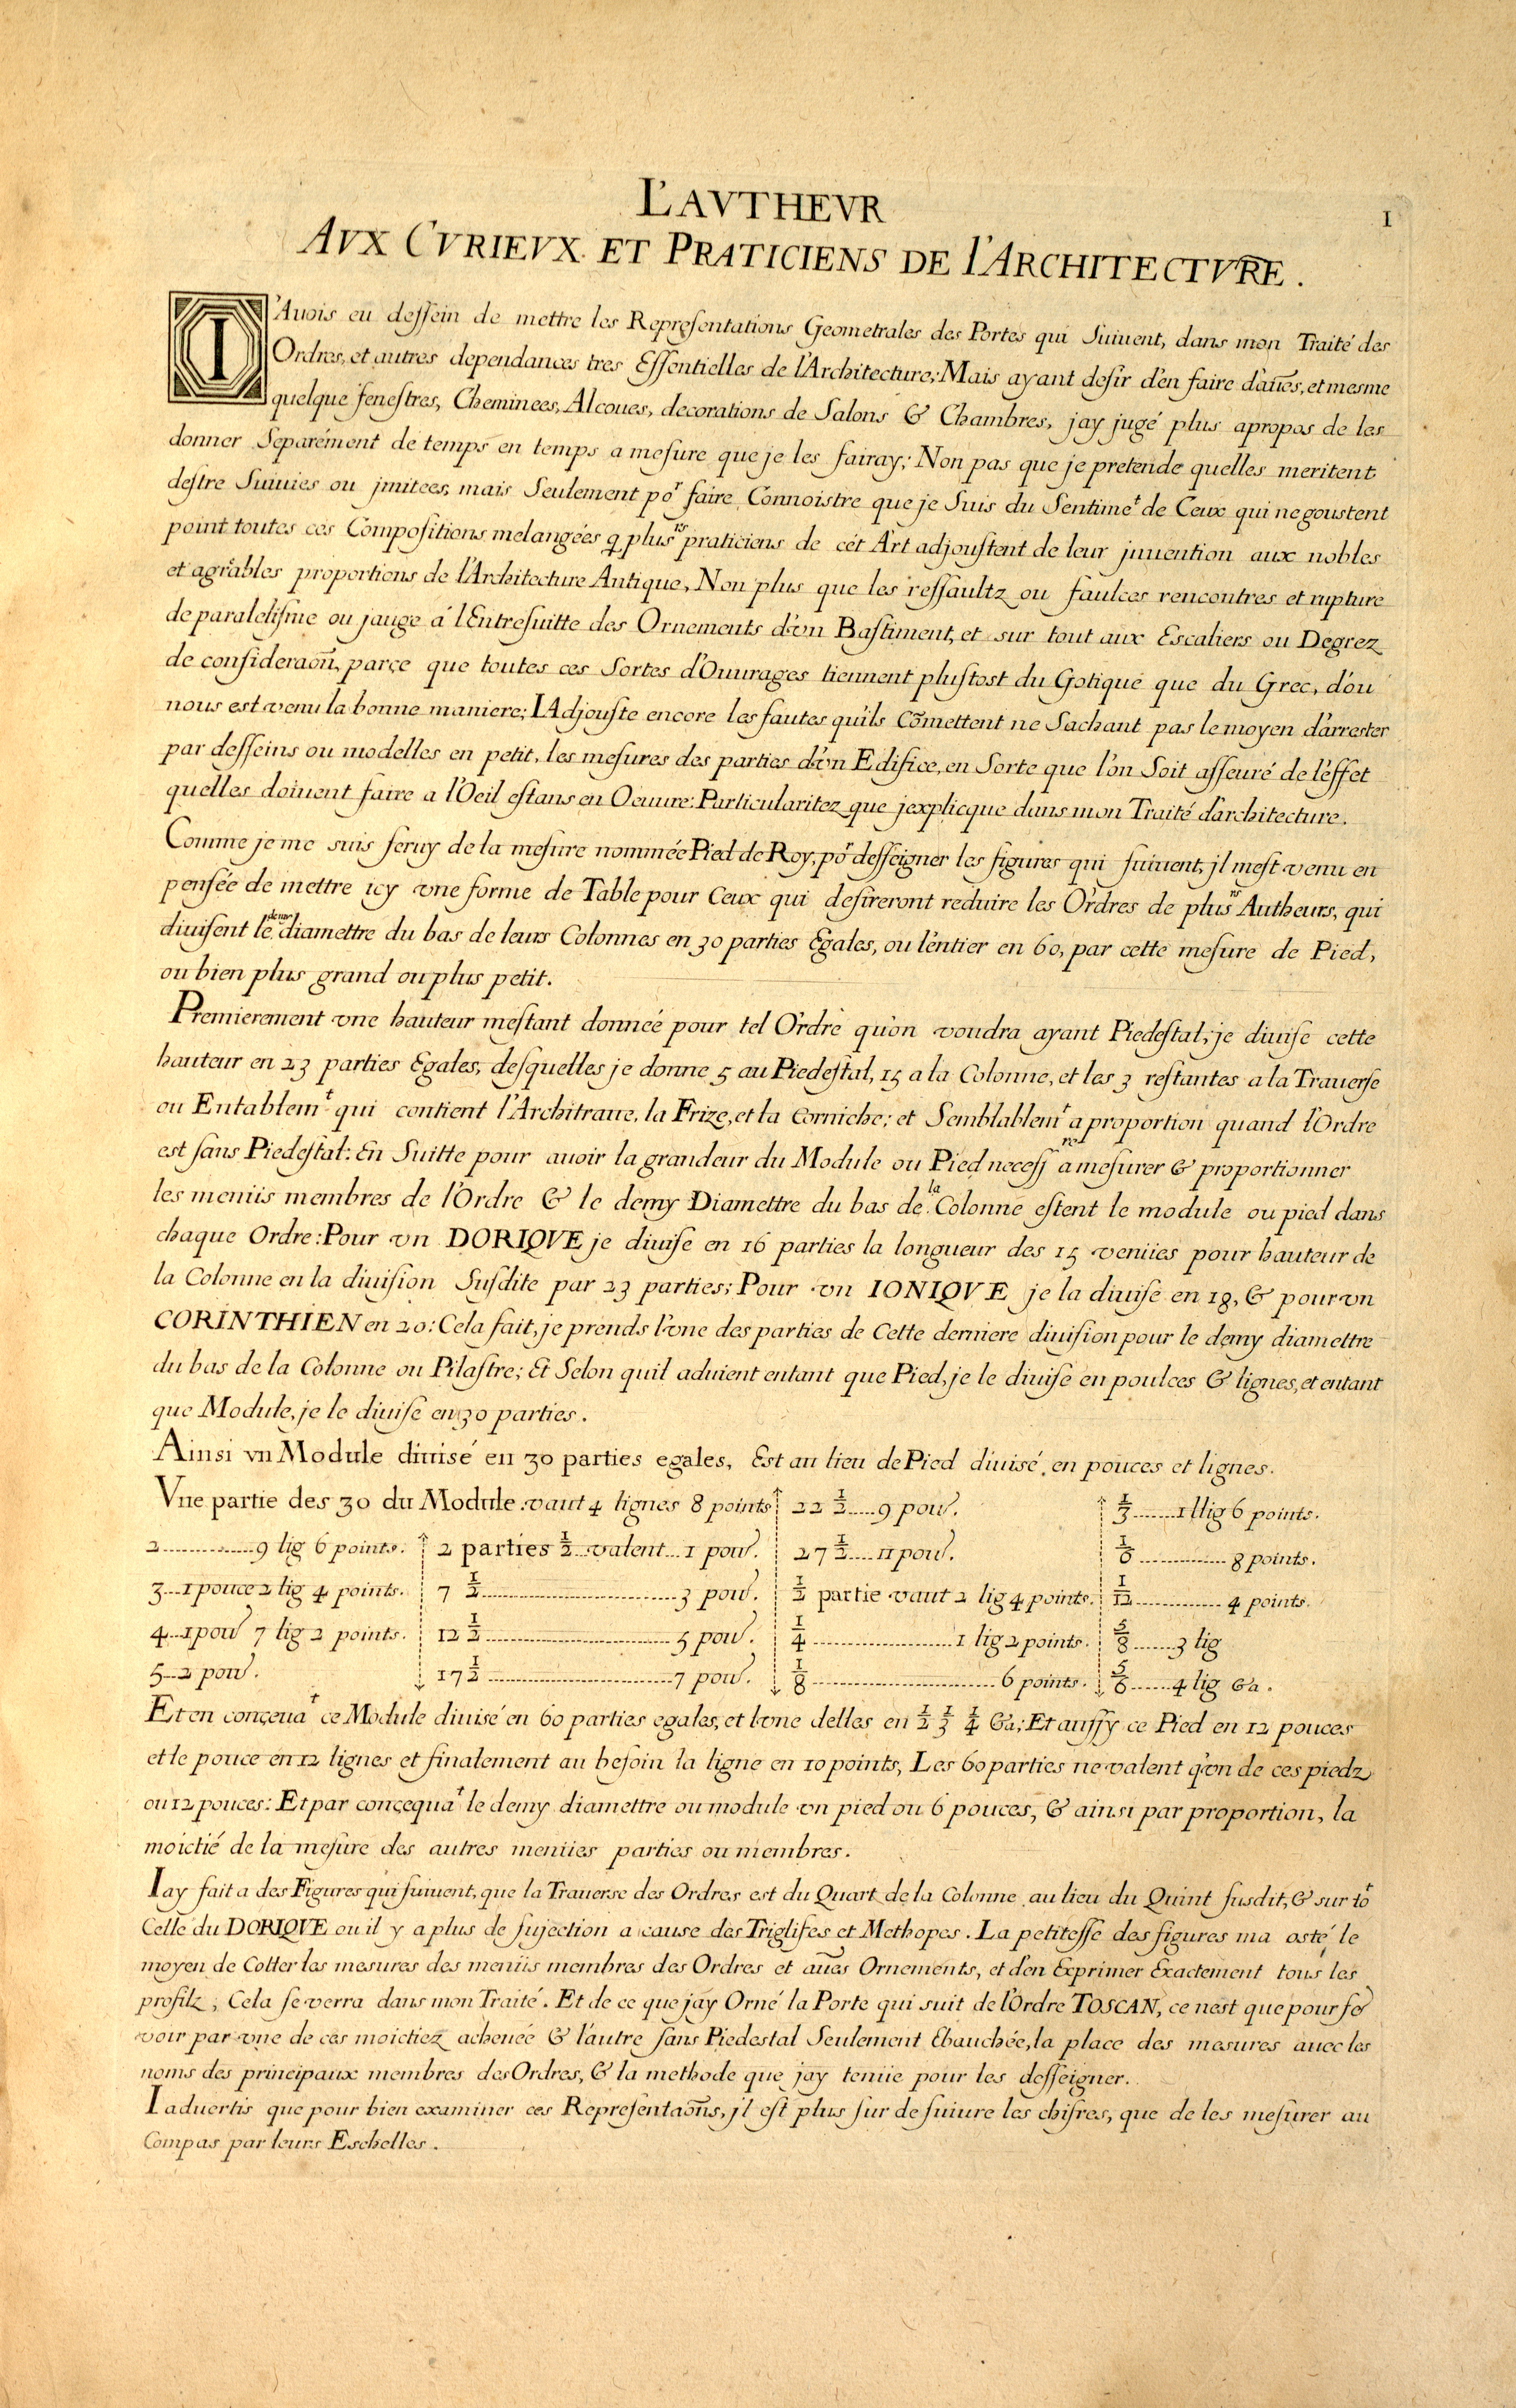 L'AVTHEVR
1
AVX CVRIEVX ET PRATICIENS DE l'ARCHITECTVRE.
I'Auois eu dessein de mettre les Representations Geometrales des Portes qui Suiuent, dans mon Traité des
Ordres, et autres dependances tres Essentielles de l'Architecture; Mais ayant desir d'en faire d'aũes, et mesme
quelque fenestres, Cheminees, Alcoues, decorations de Salons & Chambres, jay jugé plus apropos de les
donner Separément de temps en temps a mesure que je les fairay; Non pas que je pretende quelles meritent
destre Suiuies ou jmitees, mais Seulement poʳ faire Connoistre que je Suis du Sentimeᵗ de Ceux qui ne goustent
point toutes ces Compositions melangées q̃ plusʳˢ praticiens de cét Art adjoustent de leur jnuention aux nobles
et agrables proportions de l'Architecture Antique, Non plus que les ressaultz ou faulces rencontres et rupture
de paralelisme ou jauge á l'Entresuitte des Ornements d'vn Bastiment, et sur tout aux Escaliers ou Degrez
de consideraoñ, parce que toutes ces Sortes d'Ouurages tiennent plustost du Gotique que du Grec, d'ou
nous est venu la bonne maniere; I'Adjouste encore les fautes qu'ils Cõmettent ne Sachant pas le moyen d'arrester
par desseins ou modelles en petit, les mesures des parties d'vn Edifice, en Sorte que l'on Soit asseuré de l'effet
quelles doiuent faire a l'Oeil estans en Oeuure: Particularitez que jexplicque dans mon Traité d'architecture.
Comme je me suis seruy de la mesure nommée Pied de Roy, poʳ desseigner les figures qui suiuent, jl mest venu en
pensée de mettre icy vne forme de Table pour Ceux qui desireront reduire les Ordres de plusʳˢ Autheurs, qui
diuisent le demy diamettre du bas de leurs Colonnes en 30 parties Egales, ou l'entier en 60, par cette mesure de Pied,
ou bien plus grand ou plus petit.
Premierement vne hauteur mestant donneé pour tel Ordre qu'on voudra ayant Piedestal, je diuise cette
hauteur en 23 parties Egales, desquelles je donne 5 au Piedestal, 15 a la Colonne, et les 3 restantes a la Trauerse
ou Entablemᵗ qui contient l'Architraue, la Frize, et la Corniche; et Semblablemᵗ a proportion quand l'Ordre
est sans Piedestal: En Suitte pour auoir la grandeur du Module ou Pied necessʳᵉ a mesurer & proportionner
les menüs membres de l'Ordre & le demy Diamettre du bas de la Colonne estent le module ou pied dans
chaque Ordre: Pour vn DORIQVE je diuise en 16 parties la longueur des 15 venües pour hauteur de
la Colonne en la diuision Susdite par 23 parties; Pour vn IONIQVE je la diuise en 18, & pour vn
CORINTHIEN en 20: Cela fait, je prends l'vne des parties de Cette derniere diuision pour le demy diamettre
du bas de la Colonne ou Pilastre; Et Selon quil aduient entant que Pied, je le diuise en poulces & lignes, et entant
que Module, je le diuise en 30 parties.
Ainsi vn Module diuisé en 30 parties egales, Est au lieu de Pied diuisé en pouces et lignes.
Vne partie des 30 du Module vaut 4 lignes 8 points 22 ½ ..... 9 pou. ⅓ ....... 1 llig 6 points.
2 ............. 9 lig 6 points. 2 parties ½ ... valent ... 1 pou. 27 ½ .... 11 pou. ⅙ ............. 8 points.
3 ... 1 pouce 2 lig 4 points. 7 ½ ............................ 3 pou. ½ partie vaut 2 lig 4 points. 1/12 ............. 4 points.
4 ... 1 pou 7 lig 2 points. 12 ½ ........................... 5 pou. ¼ .................... 1 lig 2 points. ⅝ ....... 3 lig
5 ... 2 pou. 17 ½ ........................... 7 pou. ⅛ ........................... 6 points. ⅚ ...... 4 lig &a.
Et en conçeuaᵗ ce Module diuisé en 60 parties egales, et l'vne delles en ½ ⅓ ¼ &a; Et aussy ce Pied en 12 pouces
et le pouce en 12 lignes et finalement au besoin la ligne en 10 points, Les 60 parties ne valent q'vn de ces piedz
ou 12 pouces: Et par conçequaᵗ le demy diamettre ou module vn pied ou 6 pouces, & ainsi par proportion, la
moictié de la mesure des autres menües parties ou membres.
Iay fait a des Figures qui suiuent, que la Trauerse des Ordres est du Quart de la Colonne au lieu du Quint susdit, & sur toᵗ
Celle du DORIQVE ou il y a plus de sujection a cause des Triglifes et Methopes. La petitesse des figures ma osté le
moyen de Cotter les mesures des menüs membres des Ordres et aũes Ornements, et d'en Exprimer Exactement tous les
profilz, Cela se verra dans mon Traité. Et de ce que jay Orné la Porte qui suit de l'Ordre TOSCAN, ce nest que pour fe
voir par vne de ces moictiez acheuée & l'autre sans Piedestal Seulement Ebauchée, la place des mesures auec les
noms des principaux membres des Ordres, & la methode que jay tenüe pour les desseigner.
Iaduertis que pour bien examiner ces Representaoñs, jl est plus sur de suiure les chifres, que de les mesurer au
Compas par leurs Eschelles.